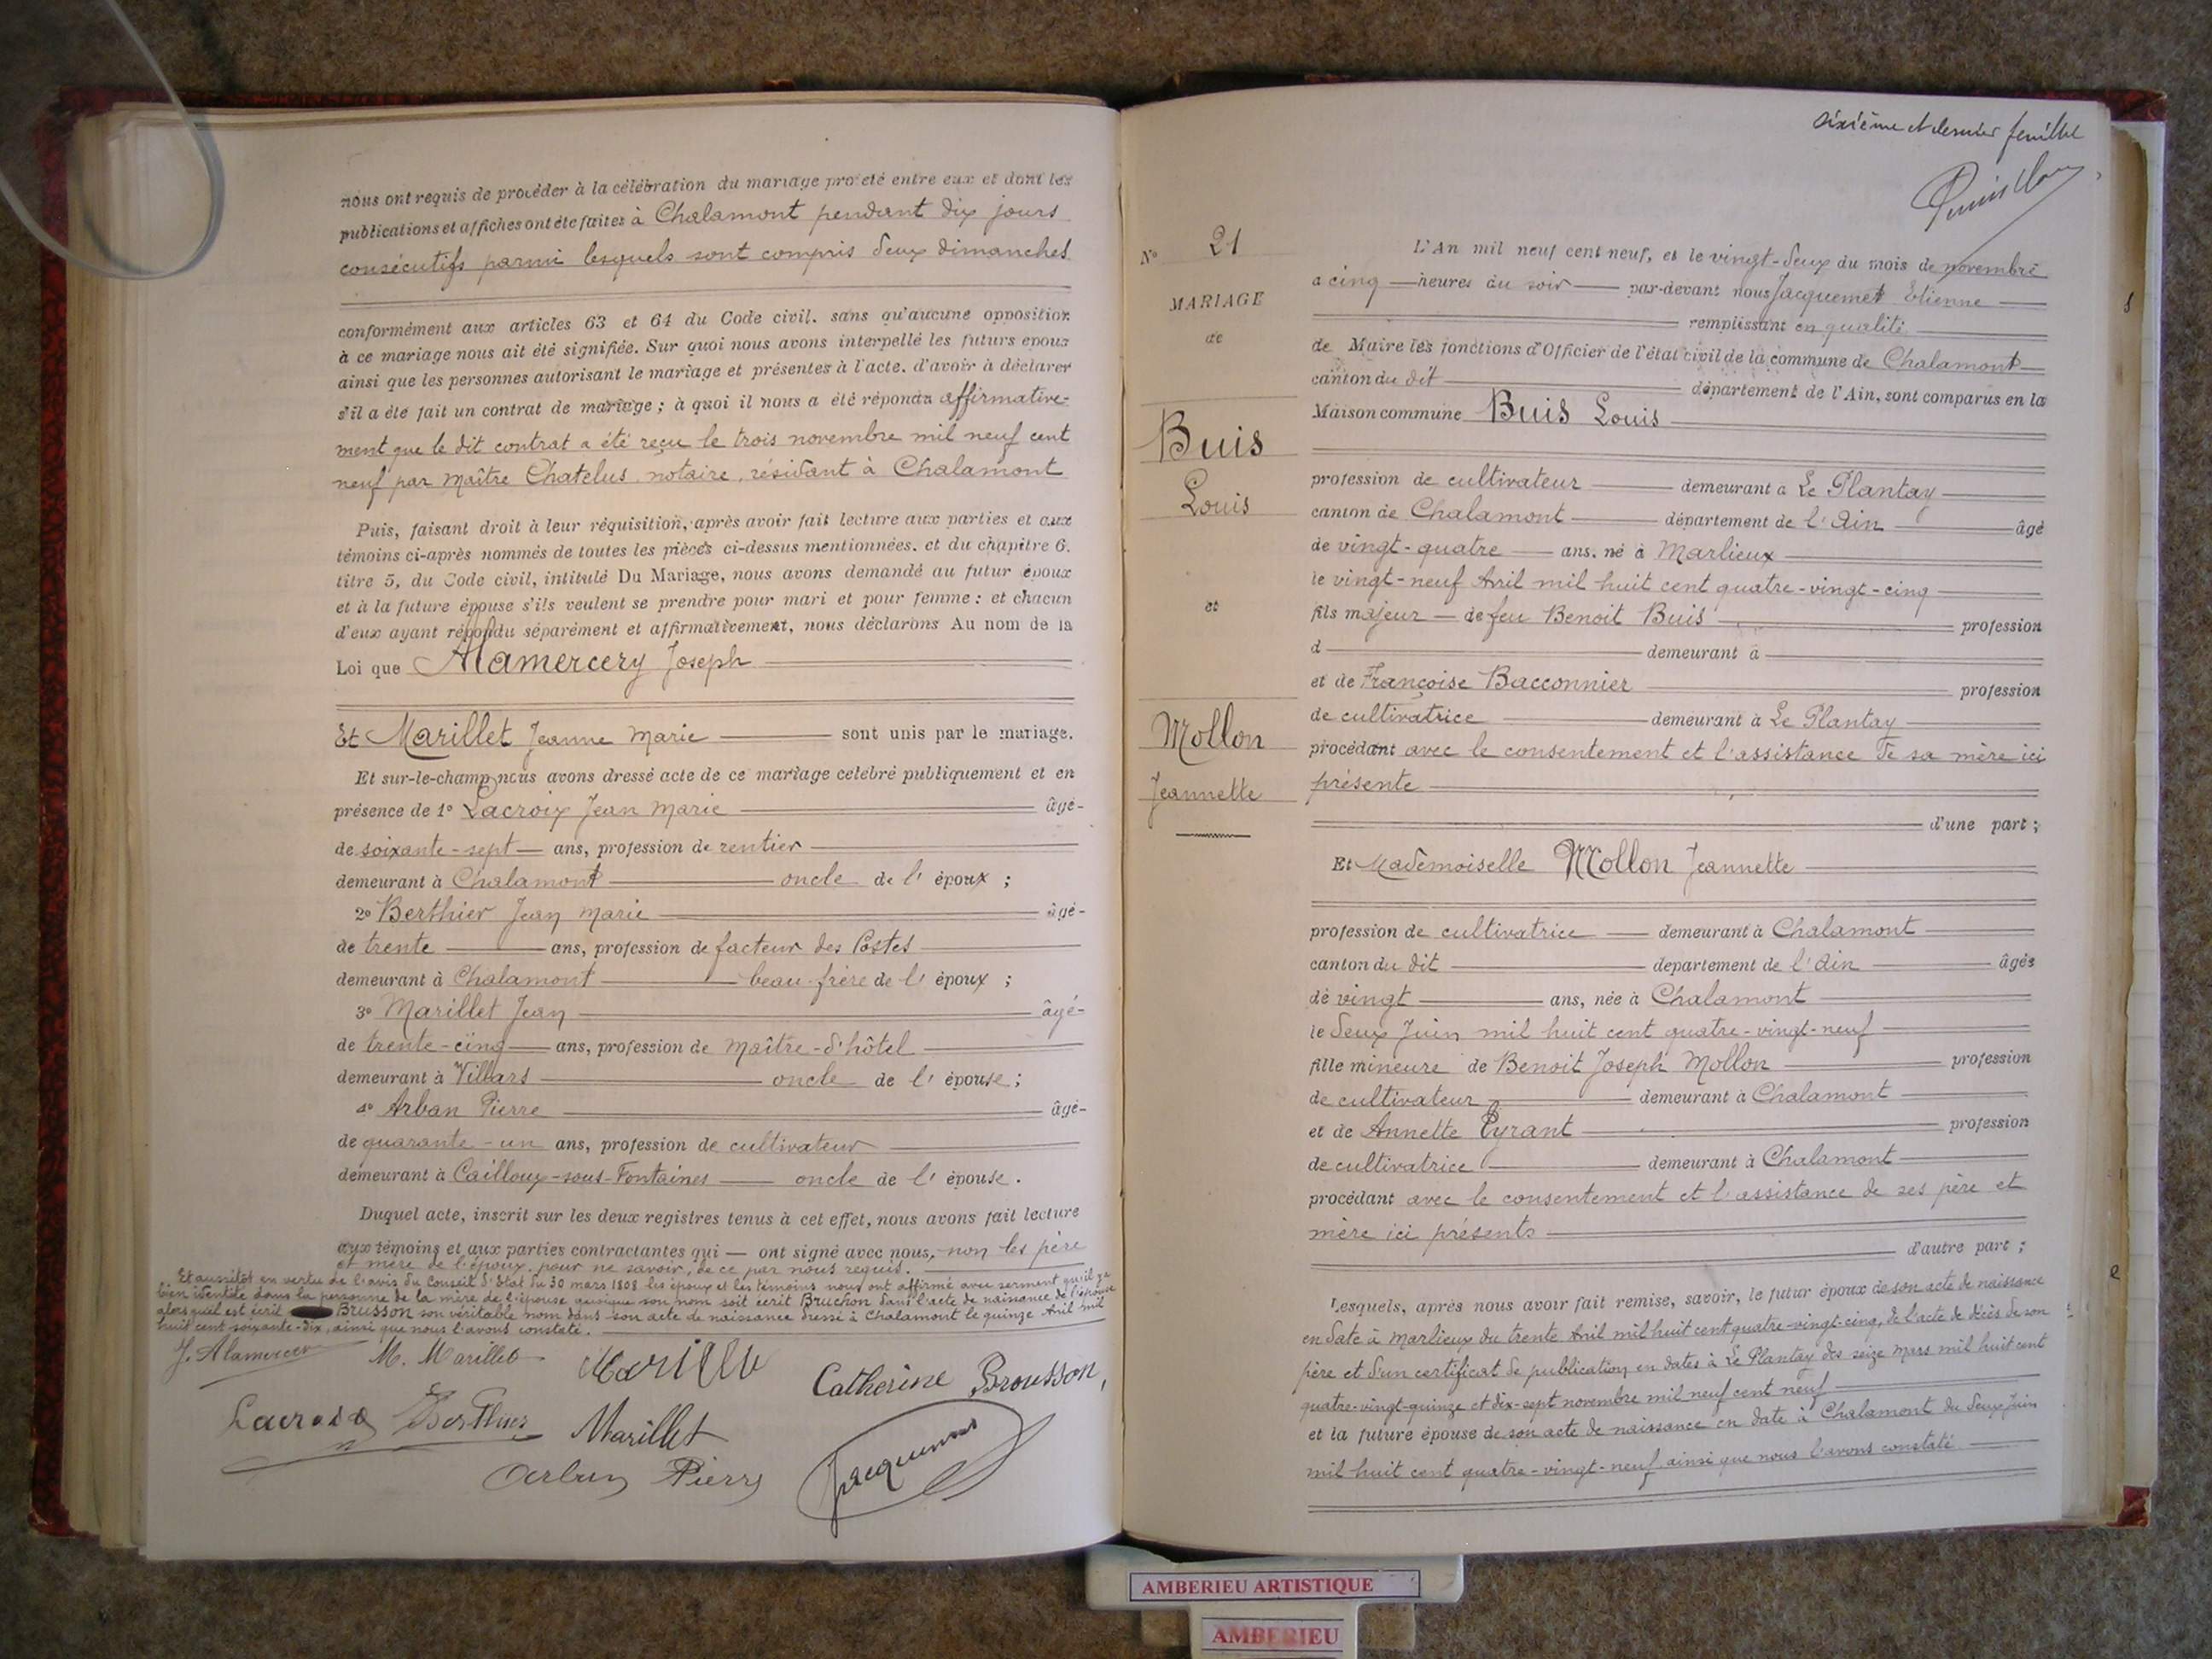 nous ont requis de procéder à la célébration du mariage projeté entre eux et dont les
publications et affiches ont été faites à Chalamont pendant dix jours
consécutifs parmi lesquels sont compris deux dimanches
conformément aux articles 63 et 64 du Code civil. sans qu'aucune opposition
à ce mariage nous ait été signifiée. Sur quoi nous avons interpellé les futurs époux
ainsi que les personnes autorisant le mariage et présentes à l'acte. d'avoir à déclarer
s'il a été fait un contrat de mariage ; à quoi il nous a été répondu affirmative-
ment que le dit contrat a été reçu le trois novembre mil neuf cent
neuf par Maître Chatelus, notaire, résidant à Chalamont
Puis, faisant droit à leur réquisition, après avoir fait lecture aux parties et aux
témoins ci-après nommés de toutes les pièces ci-dessus mentionnées. et du chapitre 6.
titre 5, du Code civil, intitulé Du Mariage, nous avons demandé au futur époux
et à la future épouse s'ils veulent se prendre pour mari et pour femme : et chacun
d'eux ayant répondu séparément et affirmativement, nous déclarons Au nom de la
Loi que Alamercery Joseph
Et Marillet Jeanne Marie sont unis par le mariage.
Et sur-le-champ nous avons dressé acte de ce mariage célébré publiquement et en
présence de 1° Lacroix Jean Marie âgé-
de soixante-sept ans, profession de rentier
demeurant à Chalamont oncle de l' époux ;
2° Berthier Jean Marie âgé-
de trente ans, profession de facteur des Postes
demeurant à Chalamont beau-frère de l' époux ;
3° Marillet Jean âgé-
de trente-cinq ans, profession de Maître-d'hôtel
demeurant à Villars oncle de l' épouse ;
4° Arban Pierre âgé-
de quarante-un ans, profession de cultivateur
demeurant à Cailloux-sous-Fontaines oncle de l' épouse.
Duquel acte, inscrit sur les deux registres tenus à cet effet, nous avons fait lecture
aux témoins et aux parties contractantes qui — ont signé avec nous, non les père
et mère de l'époux, pour ne savoir, de ce par nous requis.
Et aussitôt en vertu de l'avis du Conseil d'Etat du 30 mars 1808 les époux et les témoins nous ont affirmé avec serment qu'il y a
bien identité dans la personne de la mère de l'épouse quoique son nom soit écrit Bruchon dans l'acte de naissance de l'épouse
alors qu'il est écrit BRUSSON son véritable nom dans son acte de naissance dressé à Chalamont le quinze Avril mil
huit cent soixante-dix, ainsi que nous l'avons constaté.
J. Alamercery M. Marillet Marillet Catherine Brousson
Lacroix Berthier Marillet
Arban Pierre Jacquemet
sixième et dernier feuillet
N° 21
MARIAGE
de
Buis
Louis
et
Mollon
Jeannette
L'An mil neuf cent neuf, et le vingt-deux du mois de novembre
à cinq heures du soir par-devant nous Jacquemet Etienne
remplissant en qualité
de Maire les fonctions d'Officier de l'état civil de la commune de Chalamont
canton du dit département de l'Ain, sont comparus en la
Maison commune Buis Louis
profession de cultivateur demeurant à Le Plantay
canton de Chalamont département de l'Ain âgé
de vingt-quatre ans, né à Marlieux
le vingt-neuf Avril mil huit cent quatre-vingt-cinq
fils majeur de feu Benoit Buis profession
d demeurant à
et de Françoise Bacconnier profession
de cultivatrice demeurant à Le Plantay
procédant avec le consentement et l'assistance de sa mère ici
présente
d'une part ;
Et Mademoiselle Mollon Jeannette
profession de cultivatrice demeurant à Chalamont
canton du dit département de l'Ain âgée
de vingt ans, née à Chalamont
le deux Juin mil huit cent quatre-vingt-neuf
fille mineure de Benoit Joseph Mollon profession
de cultivateur demeurant à Chalamont
et de Annette Eyrant profession
de cultivatrice demeurant à Chalamont
procédant avec le consentement et l'assistance de ses père et
mère ici présents
d'autre part ;
Lesquels, après nous avoir fait remise, savoir, le futur époux de son acte de naissance
en date à Marlieux du trente Avril mil huit cent quatre-vingt-cinq, de l'acte de décès de son
père et d'un certificat de publication en dates à Le Plantay des seize Mars mil huit cent
quatre-vingt-quinze et dix-sept novembre mil neuf cent neuf
et la future épouse de son acte de naissance en date à Chalamont du deux Juin
mil huit cent quatre-vingt-neuf ainsi que nous l'avons constaté
AMBERIEU ARTISTIQUE
AMBERIEU